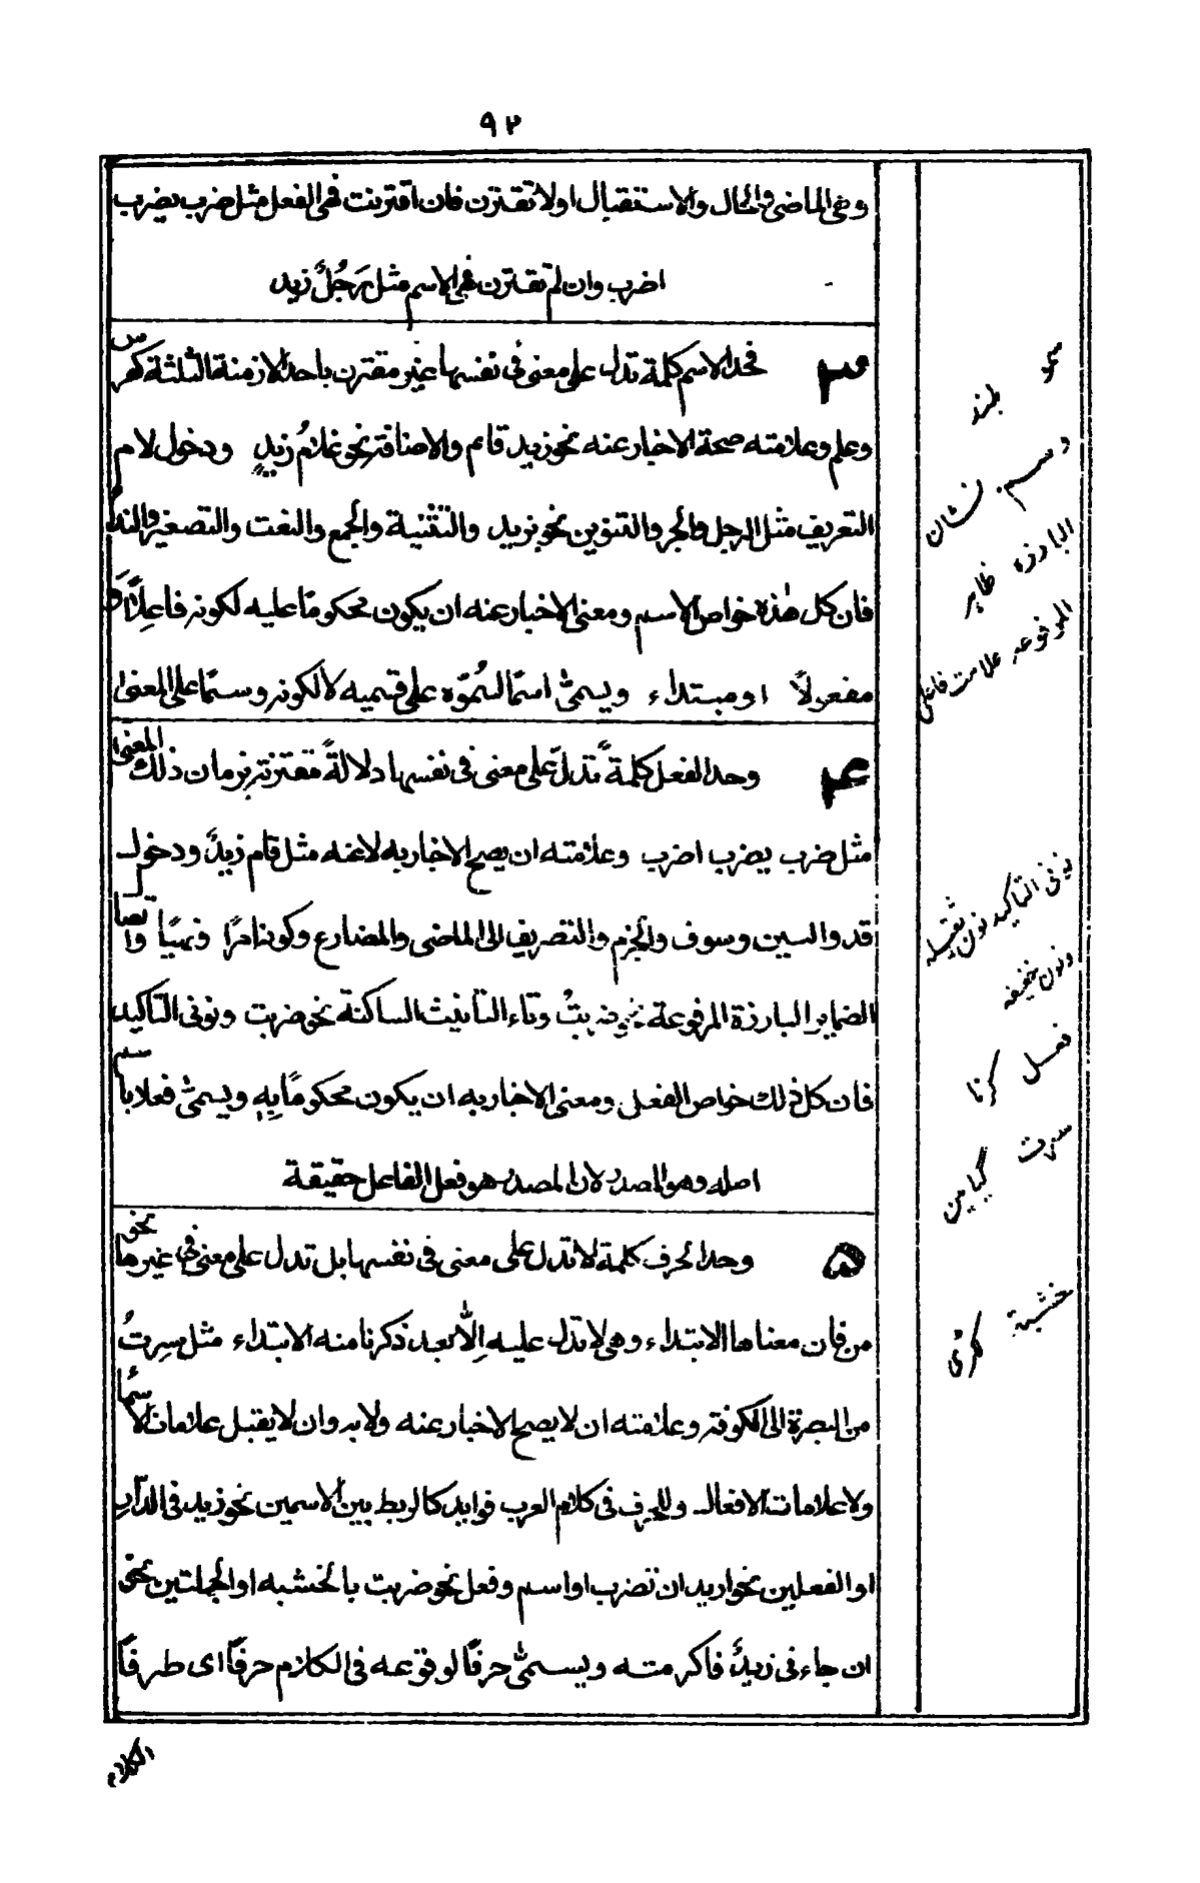 ٩٢
وهى الماضى والحال والاستقبال او لا تقترن فان اقترنت فهى الفعل مثل ضرب يضرب
اضرب وان لم تقترن فهى الاسم مثل رَجُلٌ زيد
٣ فحد الاسم كلمة تدل على معنى فى نفسها غير مقترن باحد الازمنة الثلثة كفرس
وعلم وعلامته صحة الاخبار عنه نحو زيد قائم والاضافة نحو غلامُ زيدٍ ودخول لام
التعريف مثل الرجل والجر والتنوين نحو بزيد والتثنية والجمع والنعت والتصغير والنداء
فان كل هٰذه خواص الاسم ومعنى الاخبار عنه ان يكون محكومًا عليه لكونه فاعلًا او
مفعولًا او مبتداء ويسمىٰ اسمًا لسُموّه على قسميه لا لكونه وسمًا على المعنىٰ
٤ وحد الفعل كلمةٌ تدلّ على معنى فى نفسها دلالةً مقترنة بزمان ذلك المعنىٰ
مثل ضرب يضرب اضرب وعلامته ان يصح الاخبار به لا عنه مثل قام زيدٌ ودخول
قد والسين وسوف والجزم والتصريف الى الماضى والمضارع وكونه امرًا ونهيًا واتصال
الضماير البارزة المرفوعة نحو ضربتُ وتاء التانيث الساكنة نحو ضربت ونونى التاكيد
فان كل ذلك خواص الفعل ومعنى الاخبار به ان يكون محكومًا بِهٖ ويسمىٰ فعلا باسم
اصله وهو المصدر لان المصدر هو فعل الفاعل حقيقة
٥ وحد الحرف كلمة لا تدل على معنى فى نفسها بل تدل على معنى فى غيرها نحو
من فان معناها الابتداء وهى لا تدل عليه اِلّا بعد ذكر ما منه الابتداء مثل سِرتُ
من البصرة الى الكوفة وعلامته ان لا يصح الاخبار عنه ولا به وان لا يقبل علامات الاسماء
ولا علامات الافعال وللحرف فى كلام العرب فوايد كالربط بين الاسمين نحو زيد فى الدّارِ
او الفعلين نحو اريد ان تضرب او اسم وفعل نحو ضربت بالخشبه او الجملتين نحو
ان جاءنى زيدٌ فاكرمته ويسمىّٰ حرفًا لوقوعه فى الكلام حرفًا اى طرفًا
سمو بلند
وسم نشان
البارزه ظاہر
المرفوعہ علامت فاعلى
نونى التاكيد نون ثقيله
ونون خفيفه
فعل كرنا
سرت گيا مين
خشبة لكڑى
الكلام